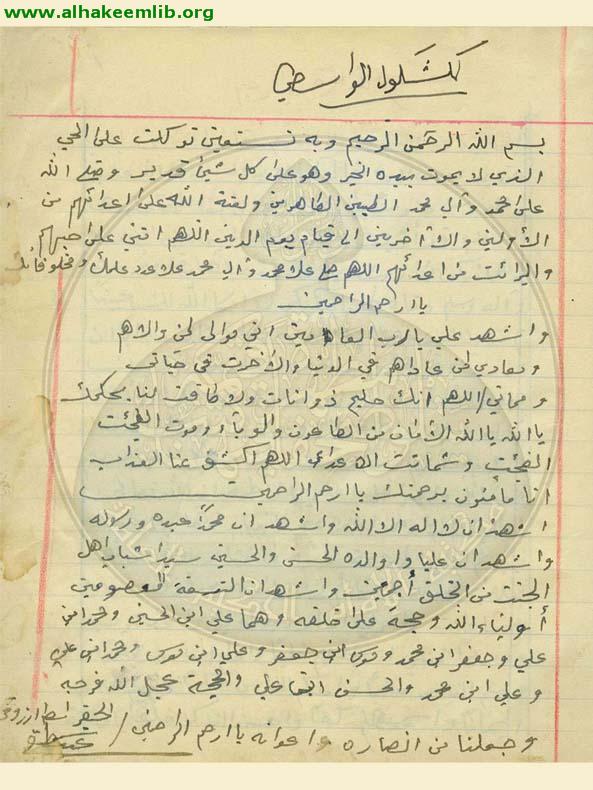 www.alhakeemlib.org
كشكول الواسطي
بسم الله الرحمن الرحيم وبه نستعين توكلت على الحي
الذي لا يموت بيده الخير وهو على كل شيئ قدير وصلى الله
على محمد وآلي محمد الطيبين الطاهرين ولعنة الله على اعدائهم من
الأولين والأآخرين الى قيام يوم الدين اللهم اتني على حبهم
والبرائت من اعدائهم اللهم صلي علا محمد وآلي محمد علا عدد علمك ومخلوقاتك
يا ارحم الراحمين
واشهد علي يا رب العالمين اني موالي لمن والاهم
ومعادي لمن عاداهم في الدنيا والأخرت في حياتي
ومماتي / اللهم انك حليم ذو انات ولا طاقت لنا بحكمك
يا الله يا الله الأمان من الطاعون والوباء وموت الفجئت
وشماتت الاعداء اللهم اكشف عنا العذاب
انا مأمنون برحمتك يا ارحم الراحمين
اشهد ان لا اله الا الله واشهد ان محمداً عبده ورسوله
واشهد ان عليا واولاده الحسن والحسين سيدا شباب اهل
الجنت من الخلق أجمعين واشهد ان التسعة المعصومين
أولياء الله وحجة على خلقه وهما علي ابن الحسين ومحمد ابن
علي وجعفر ابن محمد وموسى ابن جعفر وعلي ابن موسى ومحمد ابن علي
وعلي ابن محمد والحسن ابن علي والحجة عجيل الله فرجه
وجعلنا من انصاره واعوانه يا ارحم الراحمين / الحقير